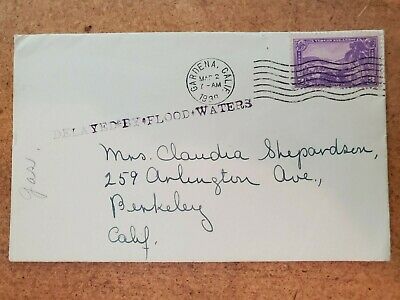 GARDENA, CALIF.
MAR 2
7-AM
DELAYED·BY·FLOOD·WATERS
Mrs. Claudia Shepardson,
259 Arlington Ave.,
Berkeley
Calif.